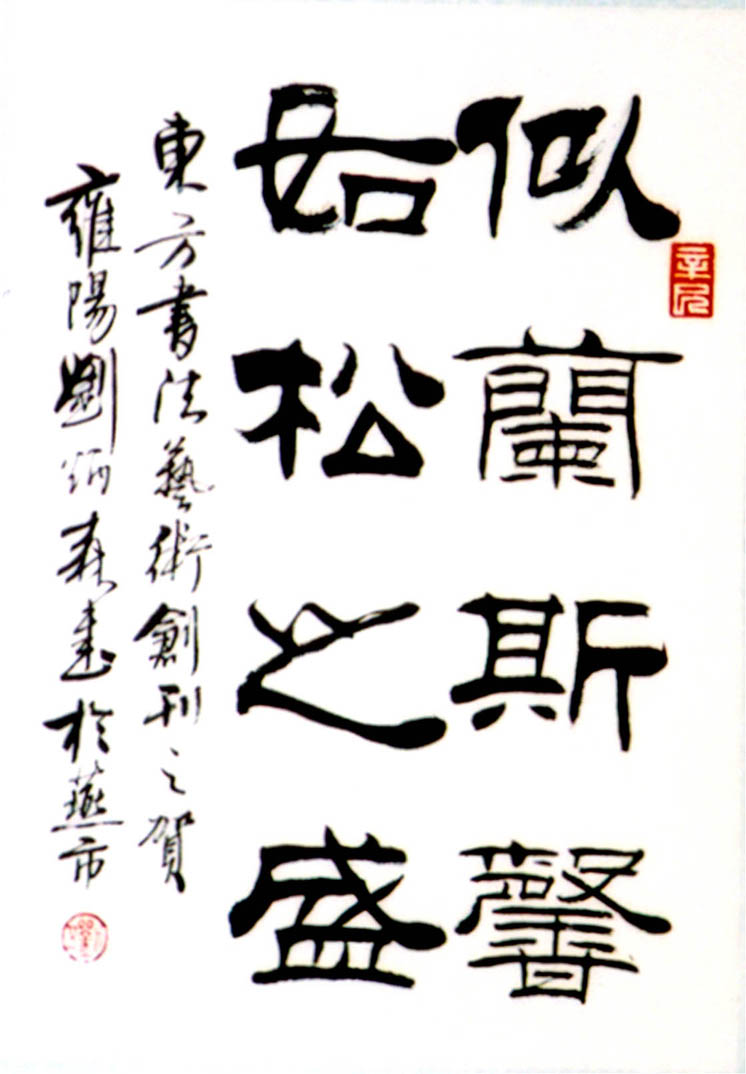 似蘭斯馨
如松之盛
東方書法藝術創刊之賀
雍陽劉炳森書於燕市
辛巳
劉